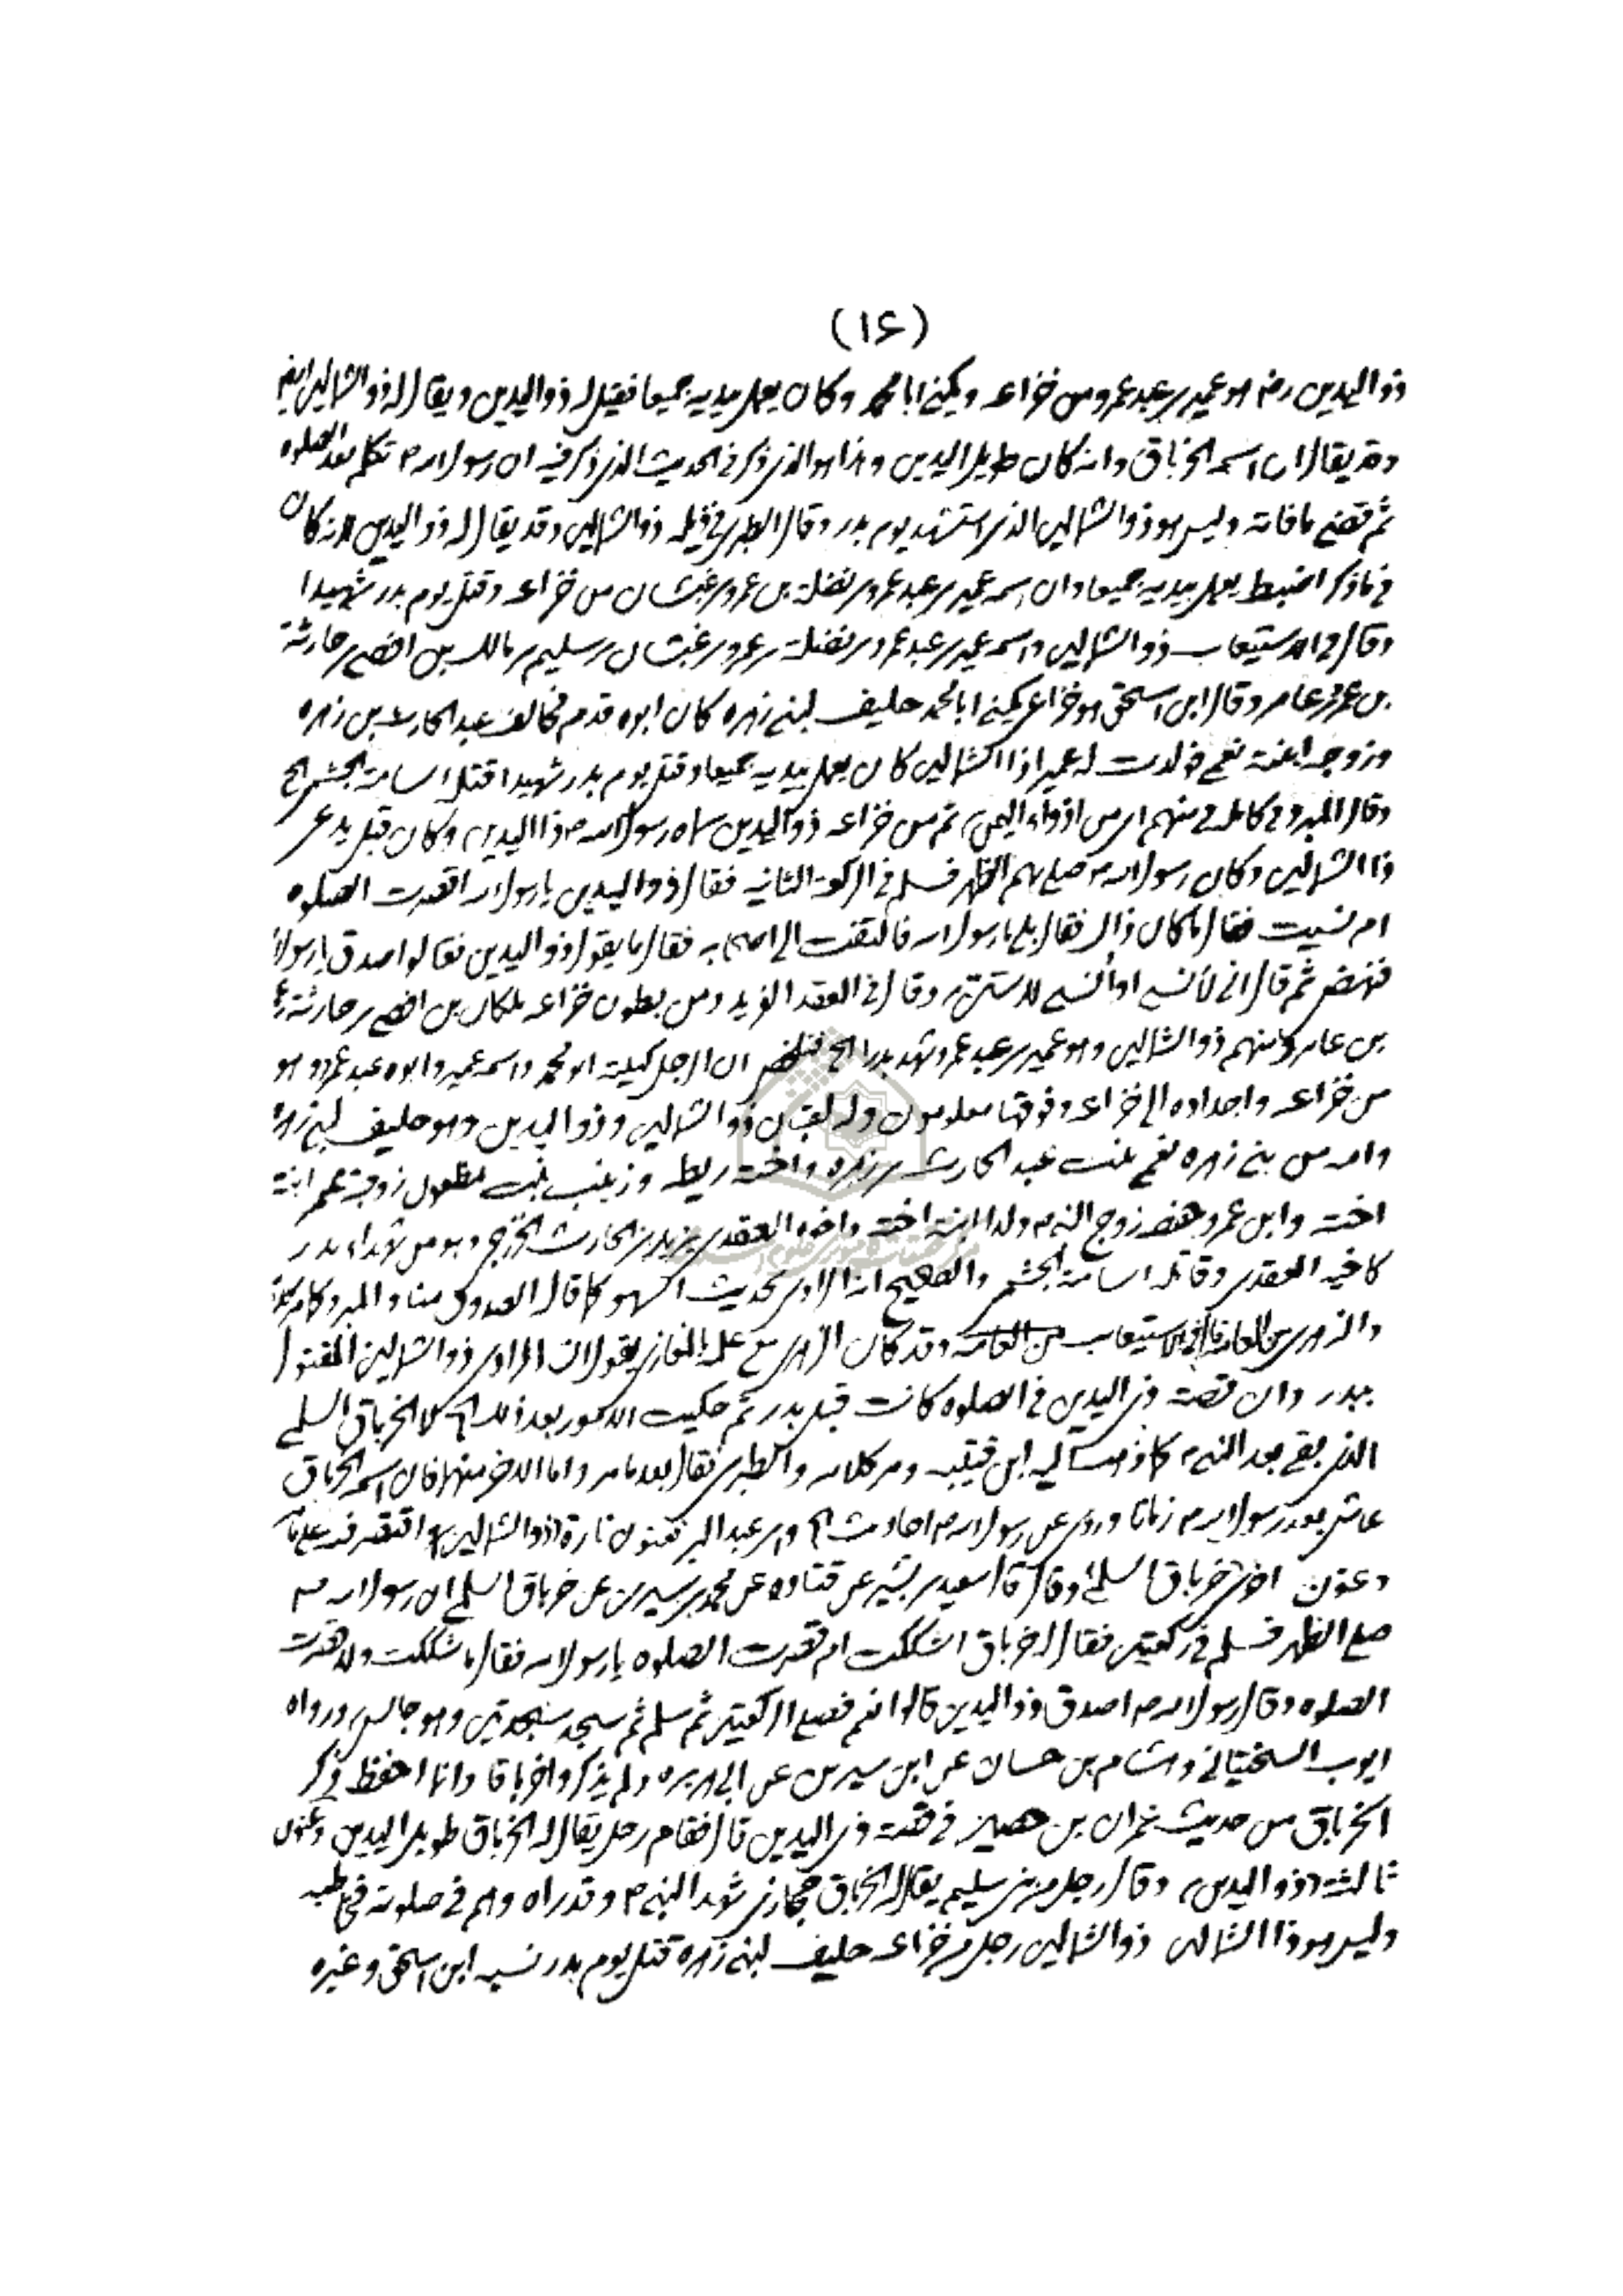 (۱۶)
ذو اليدين رض هو عمير بن عبد عمرو من خزاعه ويكنى ابا محمد وكان يعمل بيديه جميعا فقيل له ذو اليدين ويقال له ذو الشمالين ايضا
وقد يقال ان اسمه الخرباق وانه كان طويل اليدين وهذا هو الذى ذكر فى الحديث الذى ذكر فيه ان رسول الله ص تكلم بعد الصلوه
ثم قضى ما فاته وليس هو ذو الشمالين الذى استشهد يوم بدر وقال الطبرى فى ذيله ذو الشمالين وقد يقال له ذو اليدين لانه كان
فى ما ذكر اضبط يعمل بيديه جميعا وان اسمه عمير بن عبد عمرو بن نضلة بن عمرو بن غبشان من خزاعه وقتل يوم بدر شهيدا
وقال فى الاستيعاب ذو الشمالين واسمه عمير بن عبد عمرو بن نضلة بن عمرو بن غبشان بن سليم بن مالك بن افصى بن حارثة
بن عمرو بن عامر وقال ابن اسحق هو خزاعى يكنى ابا محمد حليف لبنى زهره كان ابوه قدم فحالف عبد الحارث بن زهره
وزوجه ابنته نعمى فولدت له عميرا ذا الشمالين كان يعمل بيديه جميعا وقتل يوم بدر شهيدا قتله اسامة الجشمى الخ
وقال المبرد فى كامله فى منهم اى من اذواء اليمن، ثم من خزاعه ذو اليدين سماه رسول الله ص ذا اليدين وكان قبل يدعى
ذا الشمالين وكان رسول الله ص صلى بهم الظهر فسلم فى الركعة الثانيه فقال ذو اليدين يا رسول الله اقصرت الصلوه
ام نسيت فقال ما كان ذاك فقال بلى يا رسول الله فالتفت الى اصحابه فقال ما يقول ذو اليدين فقالوا صدق يا رسول الله
فنهض ثم قال انى لأنسى او أنسى لاستن، وقال فى العقد الفريد ومن بطون خزاعه ملكان بن افصى بن حارثة بن عمرو
بن عامر منهم ذو الشمالين وهو عمير بن عبد عمرو شهد بدرا الخ فتلخص ان الرجل كنيته ابو محمد واسمه عمير وابوه عبد عمرو وهو
من خزاعه واجداده الى خزاعه وفوقها معلومون وله لقبان ذو الشمالين وذو اليدين وهو حليف لبنى زهرة
وامه من بنى زهره نعم بنت عبد الحارث بن زهره واخته ريطه وزينب بنت مظعون زوجة عمر ابنة
اخته وابن عمر وحفصه زوج النبى م ولدا ابنة اخته واخوه العقدى يزيد بن الحارث الخزرجى وهو من شهداء بدر
كاخيه العقدى وقاتله اسامة الجشمى والصحيح انه الراوى لحديث السهو كما قال الصدوق منا والمبرد كما مر كلامه
والزهرى من العامه قال فى الاستيعاب وقد كان الزهرى مع علمه بالمغازى يقول انه الراوى ذو الشمالين المقتول
ببدر وان قصة ذى اليدين فى الصلوه كانت قبل بدر ثم حكيت الامور بعد ذلك الخ لا الخرباق السلمى
الذى بقى بعد النبى م كما ذهب اليه ابن قتيبه ومر كلامه والطبرى فقال بعد ما مر واما الاخر منهما فان اسمه الخرباق
عاش بعد رسول الله م زمانا وروى عن رسول الله م احاديث الخ وابن عبد البر فعنون تارة ذو الشمالين
وعنون اخرى خرباق السلمى وقال قال سعيد بن بشير عن قتاده عن محمد بن سيرين عن خرباق السلمى ان رسول الله ص
صلى الظهر فسلم فى ركعتين فقال له خرباق اشككت ام قصرت الصلوه يا رسول الله فقال ما شككت ولا قصرت
الصلوه وقال رسول الله م اصدق ذو اليدين قالوا نعم فصلى الركعتين ثم سلم ثم سجد سجدتين وهو جالس، ورواه
ايوب السختيانى وهشام بن حسان عن ابن سيرين عن ابى هريره ولم يذكروا خرباقا وانما احفظ ذكر
الخرباق من حديث عمران بن حصين فى قصة ذى اليدين قال فقام رجل يقال له الخرباق طويل اليدين وعنون
ثالثة (ذو اليدين) وقال رجل من بنى سليم يقال له الخرباق حجازى شهد النبى م وقد راه وهم فى صلوته فخاطبه
وليس هو ذا الشمالين ذو الشمالين رجل من خزاعه حليف لبنى زهره قتل يوم بدر نسبه ابن اسحق وغيره